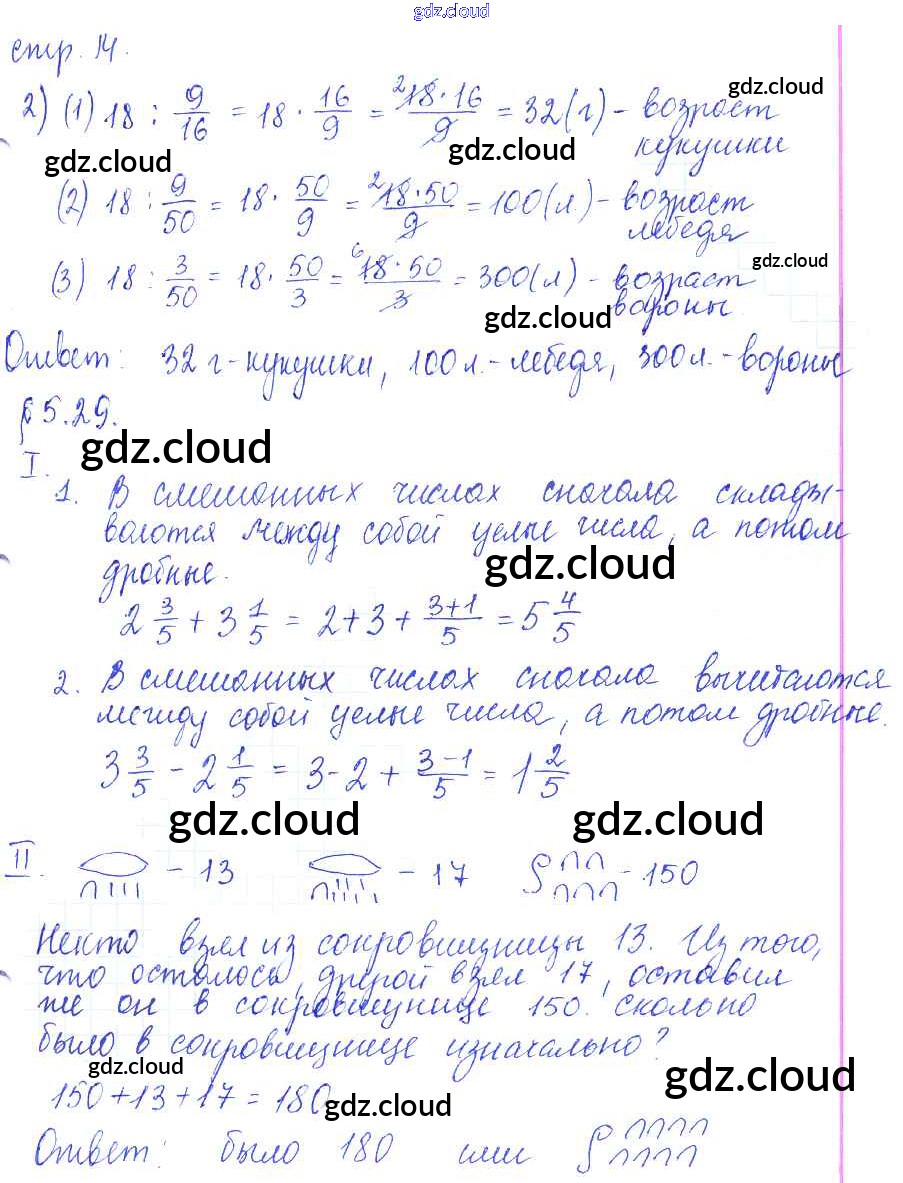 gdz.cloud
стр. 14.
2) (1) 18 : 9/16 = 18 · 16/9 = 18·16/9 = 32 (г) - возраст
кукушки
gdz.cloud
gdz.cloud
gdz.cloud
(2) 18 : 9/50 = 18 · 50/9 = 18·50/9 = 100 (л.) - возраст
лебедя
(3) 18 : 3/50 = 18 · 50/3 = 18·50/3 = 300 (л) - возраст
вороны.
gdz.cloud
gdz.cloud
Ответ: 32 г - кукушки, 100 л. - лебедя, 300 л. - вороны
§ 5.29.
gdz.cloud
I.
1. В смешанных числах сначала склады-
ваются между собой целые числа, а потом
дробные.
gdz.cloud
2 3/5 + 3 1/5 = 2 + 3 + 3+1/5 = 5 4/5
2. В смешанных числах сначала вычитаются
между собой целые числа, а потом дробные.
3 3/5 - 2 1/5 = 3 - 2 + 3-1/5 = 1 2/5
gdz.cloud
gdz.cloud
II. - 13 - 17 - 150
Некто взял из сокровищницы 13. Из того,
что осталось, другой взял 17, оставил
же он в сокровищнице 150. Сколько
было в сокровищнице изначально?
gdz.cloud
gdz.cloud
150 + 13 + 17 = 180
gdz.cloud
Ответ: было 180 или